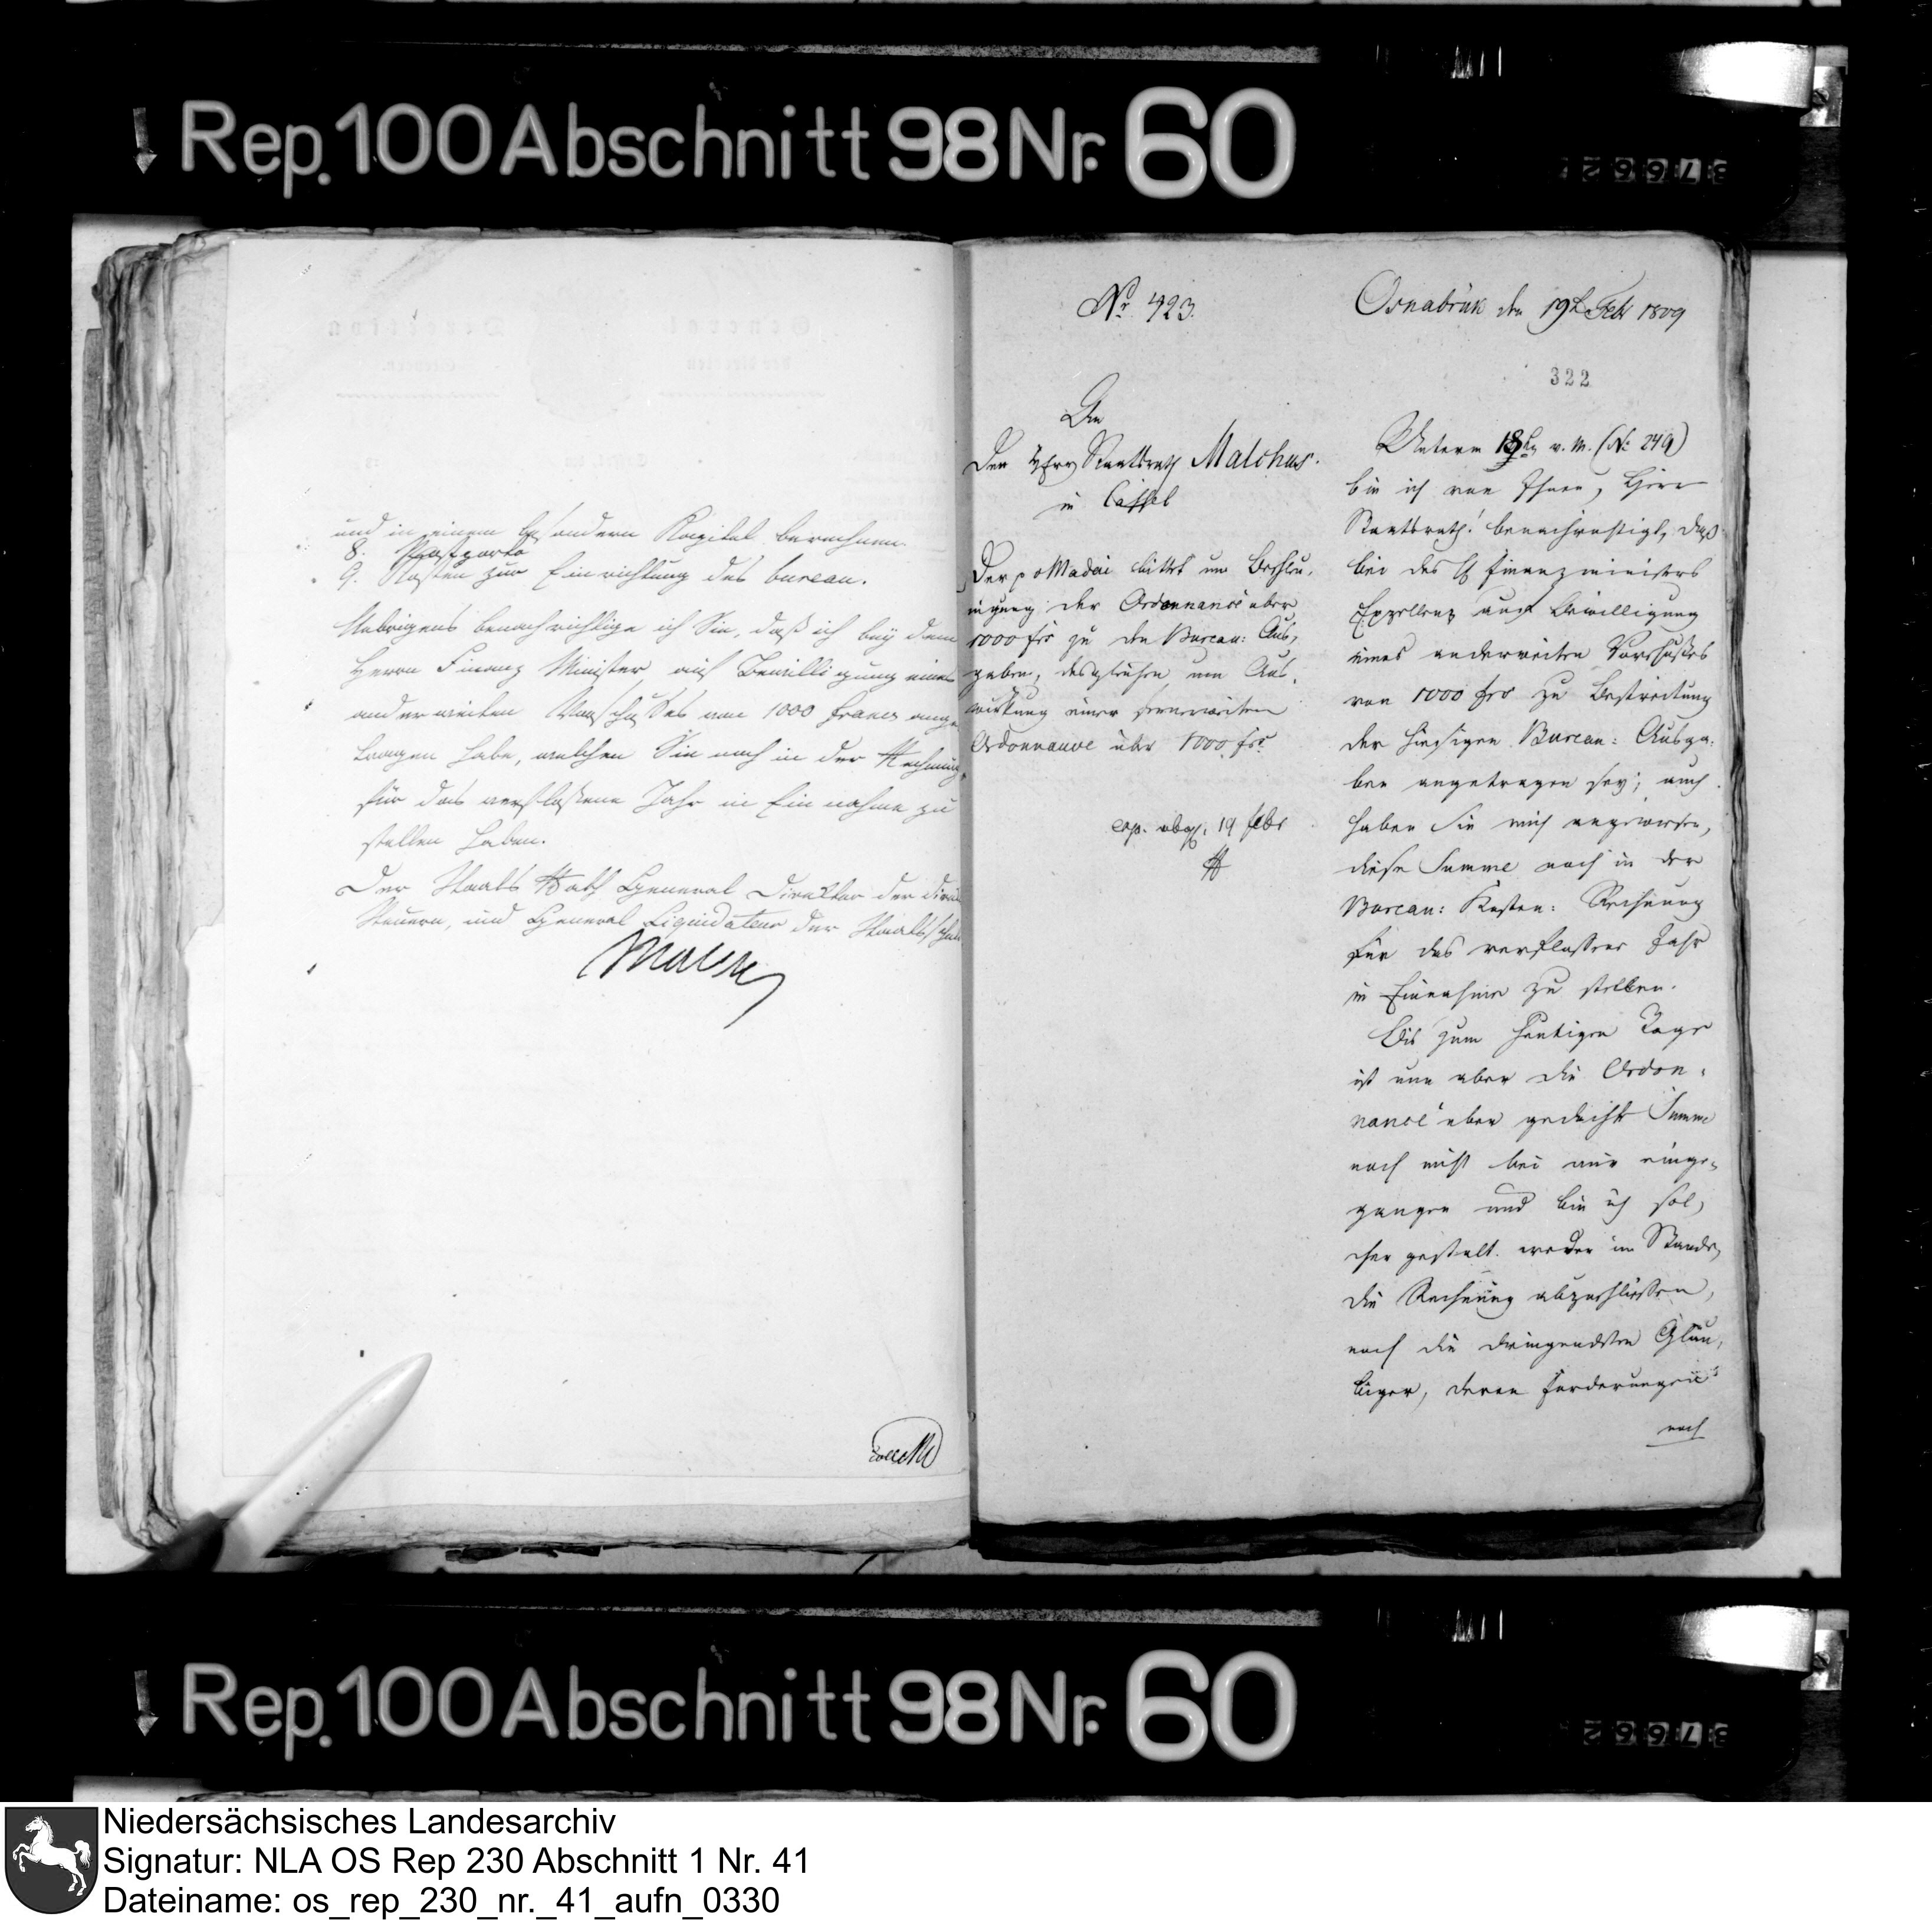 Rep. 100 Abschnitt 98 Nr. 60
37662
und in einem besondern Kapitel berechnen.
8. Postporto
9. Kosten zur Einrichtung des bureau.
Uebrigens benachrichtige ich Sie, daß ich bey dem
Herrn Finanz Minister auf Bewilligung eines
anderweiten Vorschußes von 1000 francs ange-
tragen habe, welchen Sie noch in der Rechnung
für das verfloßene Jahr in Einnahme zu
stellen haben.
Der Staats Rath General Direktor der direct
Steuern, und General Liquidateur der Staatsschuld
Malchus
No. 423.
Osnabrük den 19t Febr 1809
322
An
den Herrn Staatsrath Malchus.
in Cassel
Der p v Madai bittet um Beschleu-
nigung der Ordonnance über
1000 frs zu den Bureau: Aus-
gaben, desgleichen um Aus-
wirkung einer ferneweiten
Ordonnance über 1000 frs
exp. abg. 19 febr
Unterm 18ten v. M. (No 249)
bin ich von Ihnen, Herr
Staatsrath! benachrichtigt, daß
bei des H finanzministers
Exzellenz auf Bewilligung
eines anderweiten Vorschußes
von 1000 frs zu Bestreitung
der hiesigen Bureau: Ausga-
ben angetragen sey; auch
haben Sie mich angewiesen,
diese Summe noch in der
Bureau: Kosten: Rechnung
für das verfloßene Jahr
in Einnahme zu stellen.
Bis zum heutigen Tage
ist nun aber die Ordon-
nance über gedachte Summe
noch nicht bei mir einge-
gangen und bin ich sol-
cher gestalt weder im Stande,
die Rechnung abzuschließen,
noch die dringendsten Gläu-
biger, deren Forderungen
noch
Rep. 100 Abschnitt 98 Nr. 60
37662
Niedersächsisches Landesarchiv
Signatur: NLA OS Rep 230 Abschnitt 1 Nr. 41
Dateiname: os_rep_230_nr._41_aufn_0330